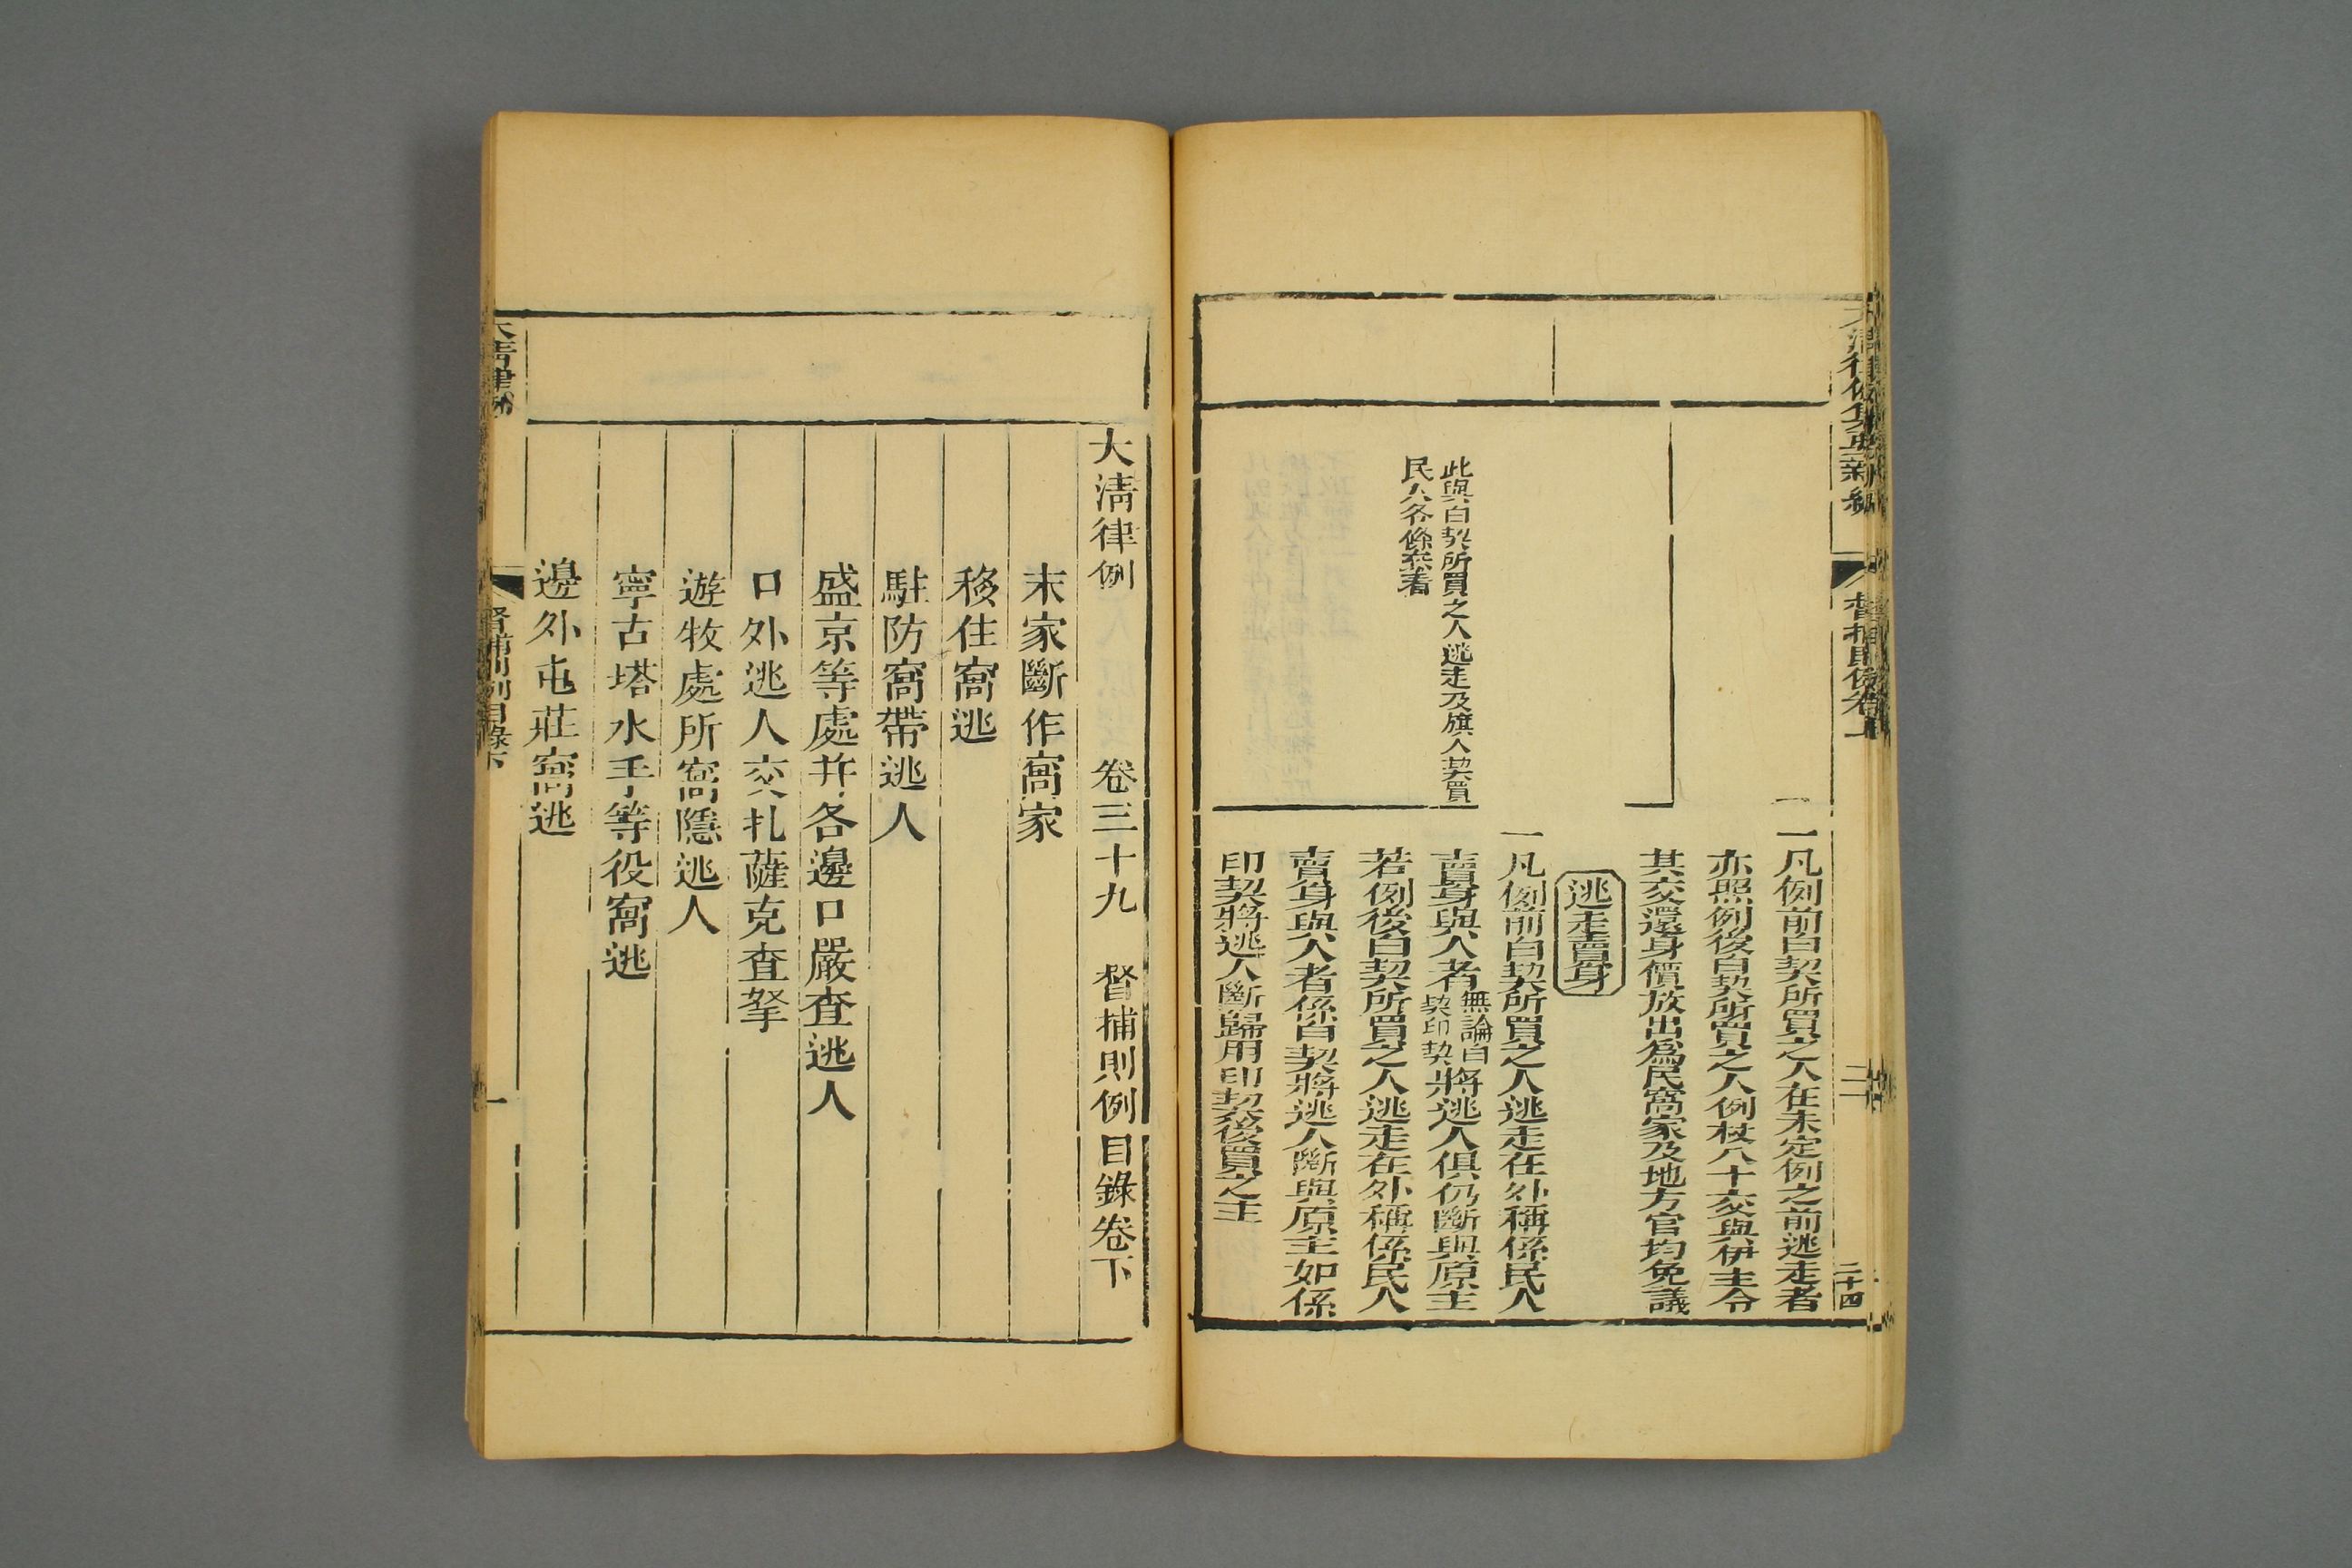 大清律例集要新編
督捕則例卷上
二十四
一凡例前白契所買之人在未定例之前逃走者
亦照例後白契所買之人例杖八十交與伊主令
其交還身價放出爲民窩家及地方官均免議
逃走賣身
一凡例前白契所買之人逃走在外稱係民人
賣身與人者無論白契印契將逃人俱仍斷與原主
若例後白契所買之人逃走在外稱係民人
賣身與人者係白契將逃人斷與原主如係
印契將逃人斷歸用印契後買之主
此與白契所買之人逃走及旗人契買
民人各條叅看
大清律例 卷三十九 督捕則例目錄卷下
末家斷作窩家
移住窩逃
駐防窩帶逃人
盛京等處并各邊口嚴查逃人
口外逃人交扎薩克查拏
遊牧處所窩隱逃人
寧古塔水手等役窩逃
邊外屯莊窩逃
大清律例
督捕則例目錄下
一